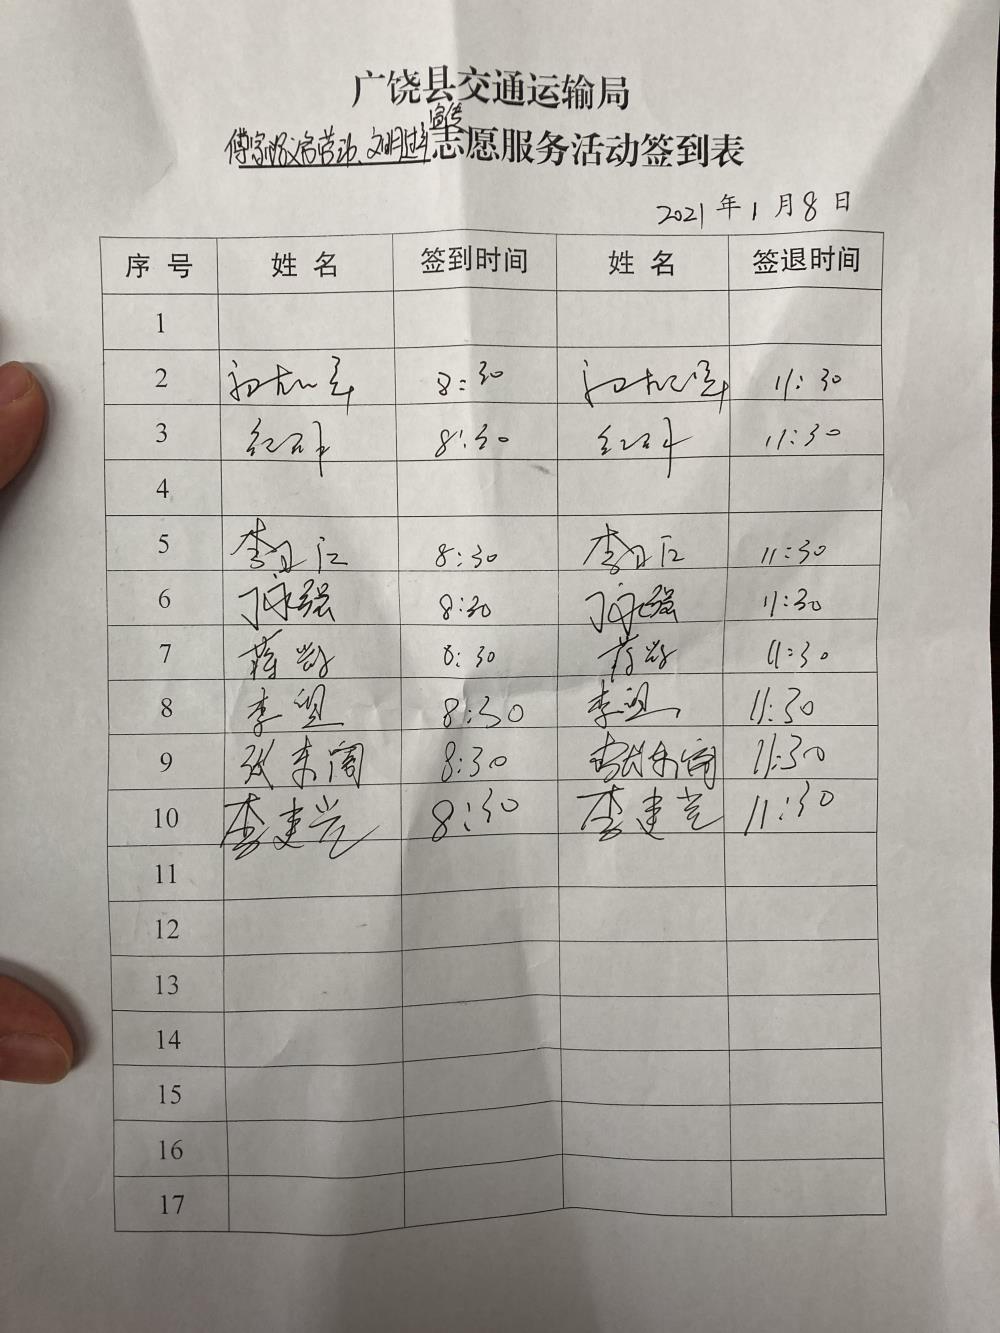 广饶县交通运输局
文明过年宣传志愿服务活动签到表
2021年1月8日
序号 姓名 签到时间 姓名 签退时间
1
2 8:30 11:30
3 8:30 11:30
4
5 李卫江 8:30 李卫江 11:30
6 强 8:30 强 11:30
7 蒋 8:30 蒋 11:30
8 李 8:30 李 11:30
9 张东阁 8:30 张东阁 11:30
10 李建党 8:30 李建党 11:30
11
12
13
14
15
16
17